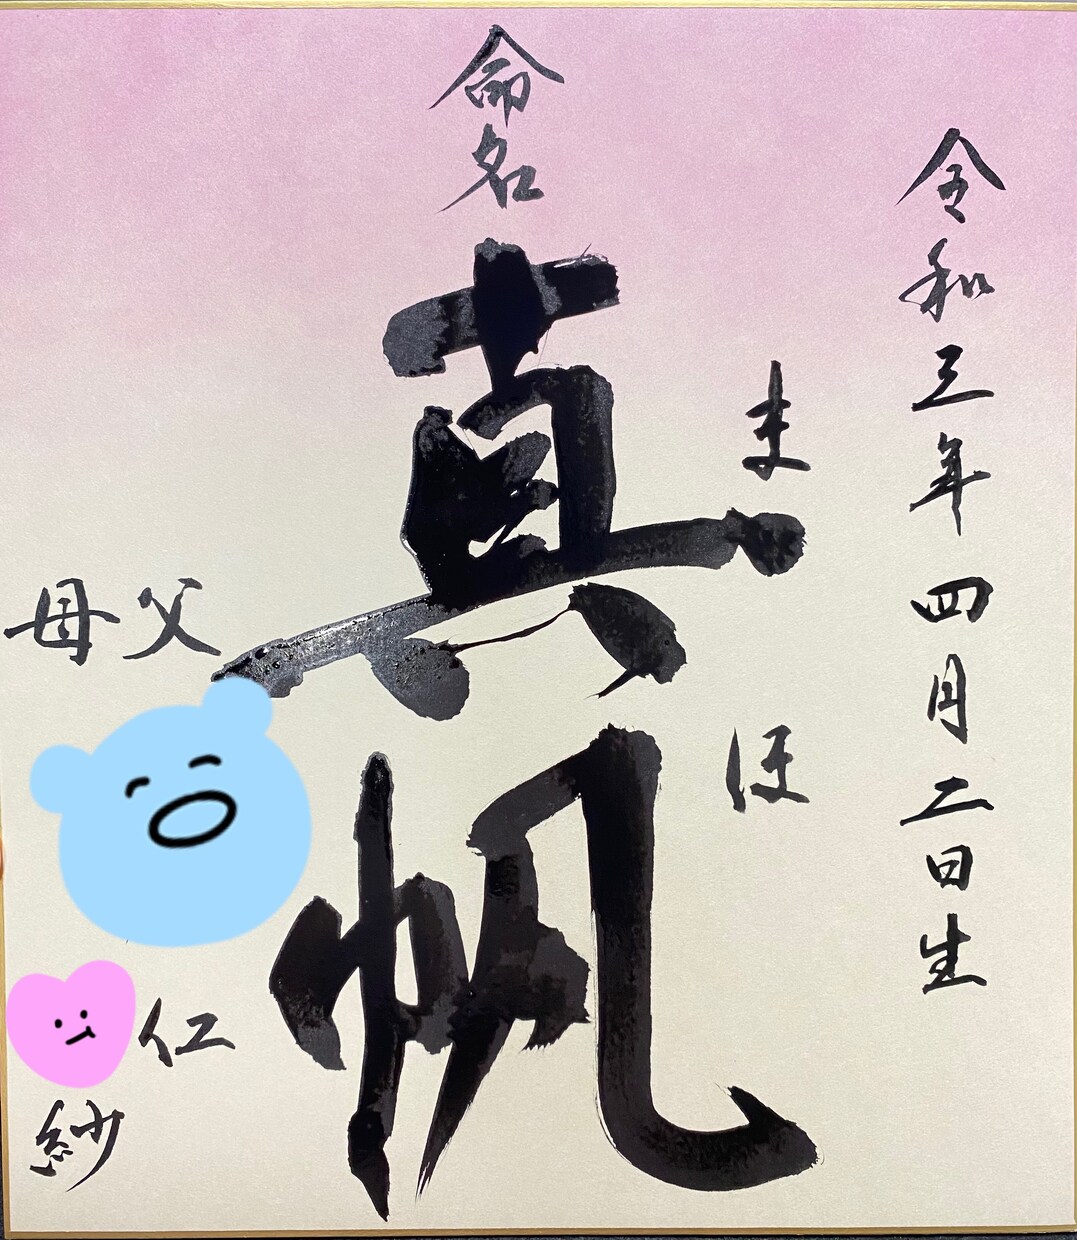 令和三年四月二日生
まほ
命名
真帆
父
仁
母
紗